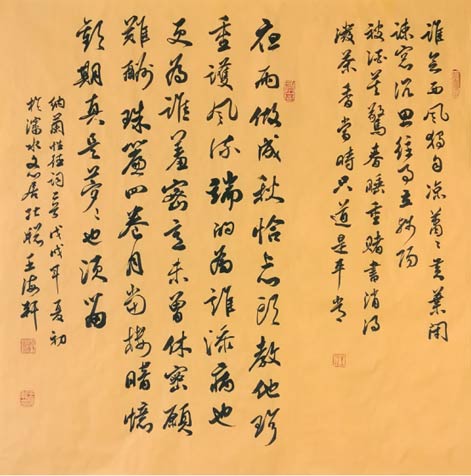 誰念西風獨自涼蕭々黃葉閉
疎窗沉思往事立殘陽
被酒莫驚春睡重賭書消得
潑茶香當時只道是平常
夜雨做成秋恰上心頭教他珍
重護風流端的為誰添病也
更為誰羞密意未曾休密願
難酬珠簾四卷月當樓暗憶
歡期真是夢々也須留
納蘭性德詞二首戊戌年夏初
於瀋水文心居北牕王海軒